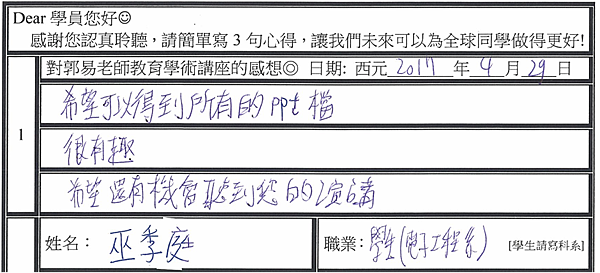 Dear 學員您好☺
感謝您認真聆聽，請簡單寫 3 句心得，讓我們未來可以為全球同學做得更好!
對郭易老師教育學術講座的感想◎ 日期: 西元 2017 年 4 月 29 日
1
希望可以得到所有的 ppt 檔
很有趣
希望還有機會聽到您的演講
姓名： 巫季庭
職業： 學生(電子工程系) [學生請寫科系]